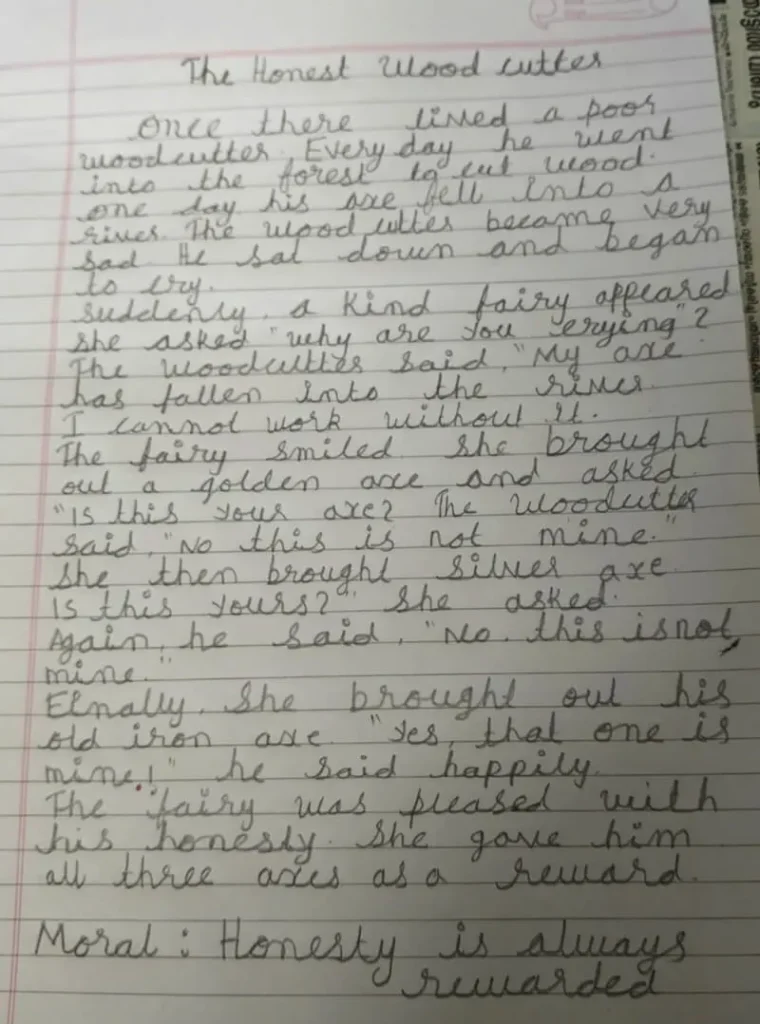 The Honest Wood cutter
Once there lived a poor
woodcutter. Every day he went
into the forest to cut wood.
one day his axe fell into a
river. The wood cutter became very
sad. He sat down and began
to cry.
suddenly, a kind fairy appeared
she asked "why are you crying"?
The woodcutter said, "My axe
has fallen into the river.
I cannot work without it.
The fairy smiled. She brought
out a golden axe and asked
"Is this your axe? The woodcutter
said, "No this is not mine."
She then brought silver axe.
Is this yours?" She asked.
Again, he said, "No. this is not
mine."
Finally, She brought out his
old iron axe "Yes, that one is
mine!" he said happily.
The fairy was pleased with
his honesty. She gave him
all three axes as a reward.
Moral : Honesty is always
rewarded